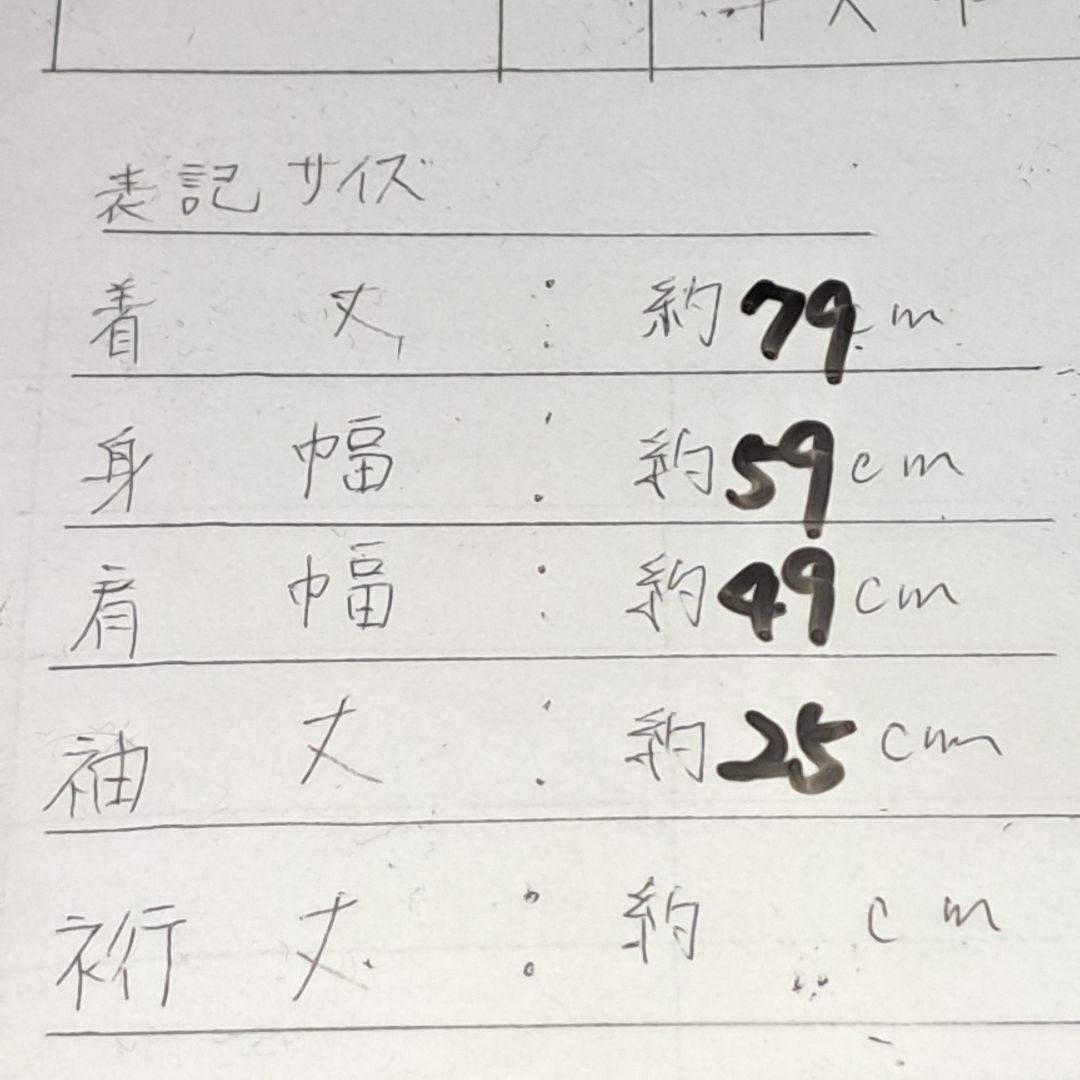 表記サイズ
着丈:約79cm
身幅:約59cm
肩幅:約49cm
袖丈:約25cm
裄丈:約 cm